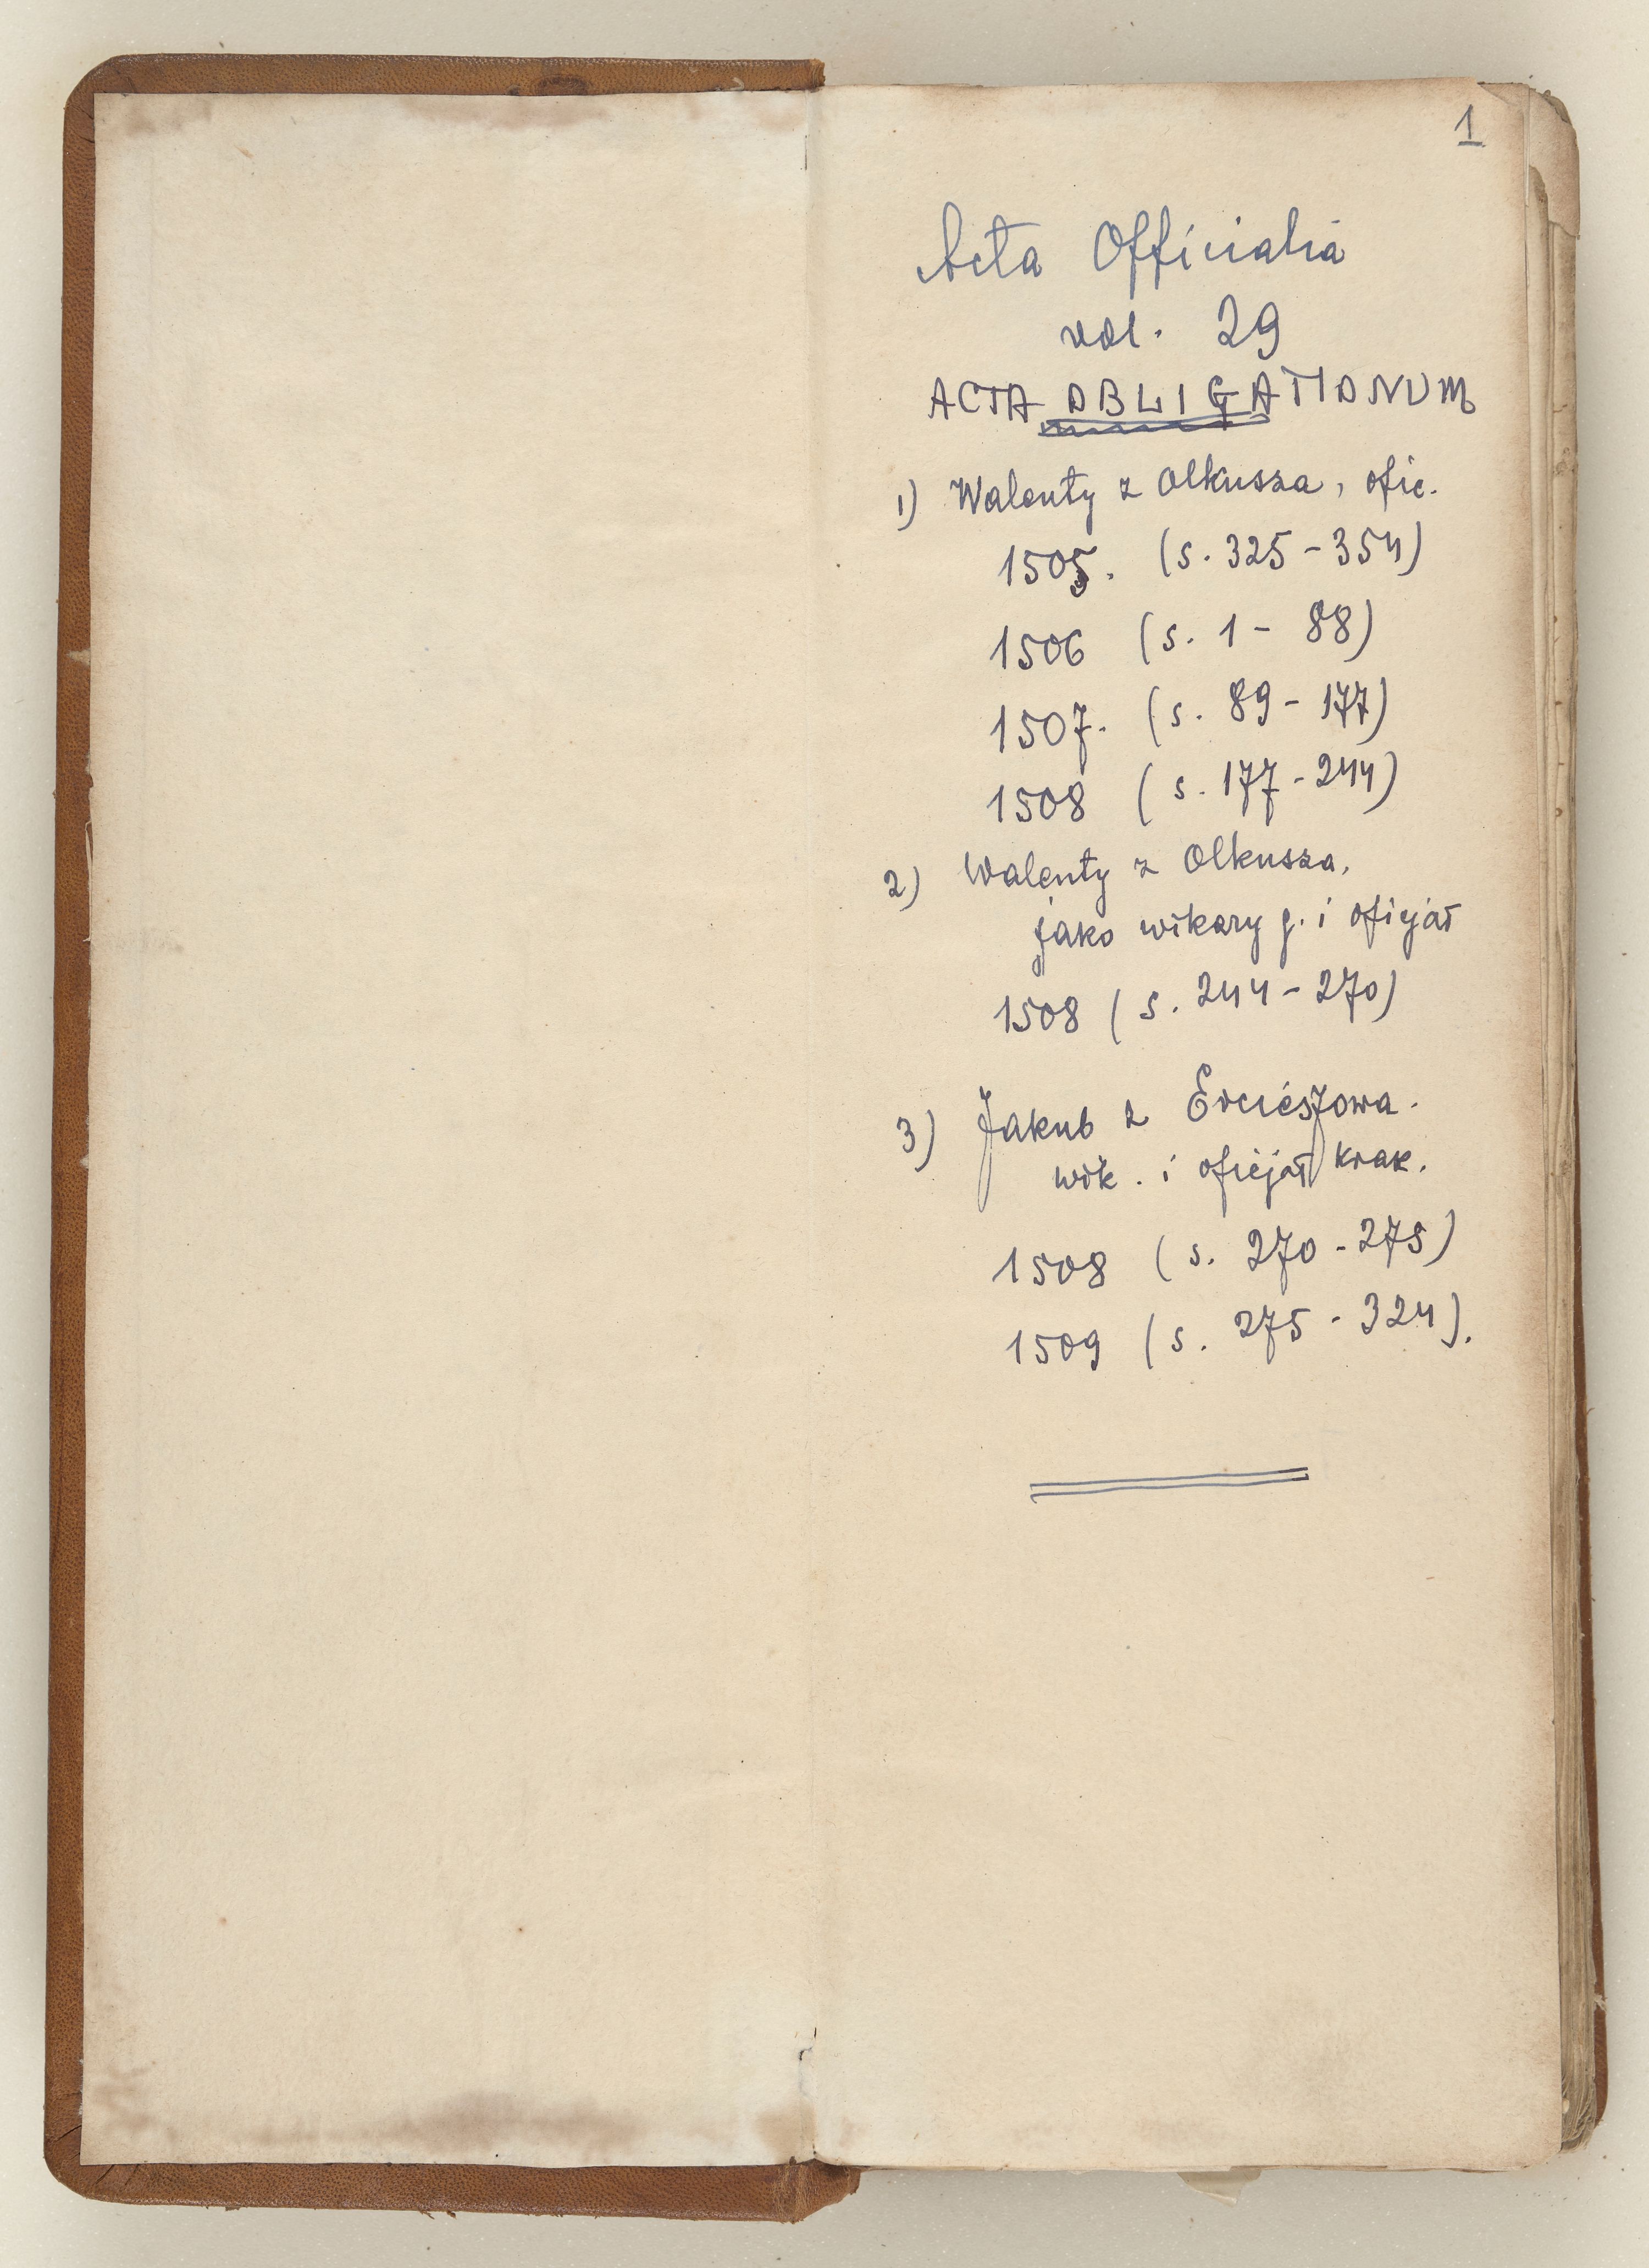 1
Acta Officialia
vol. 29
ACTA OBLIGATIONUM
1) Walenty z Olkusza, ofic.
1505. (s. 325-354)
1506 (s. 1- 88)
1507. (s. 89-177)
1508 (s. 177-244)
2) Walenty z Olkusza,
jako wikary g. i oficjał
1508 (s. 244-270)
3) Jakub z Ercieszowa.
wik. i oficjał krak.
1508 (s. 270-275)
1509 (s. 275-324).